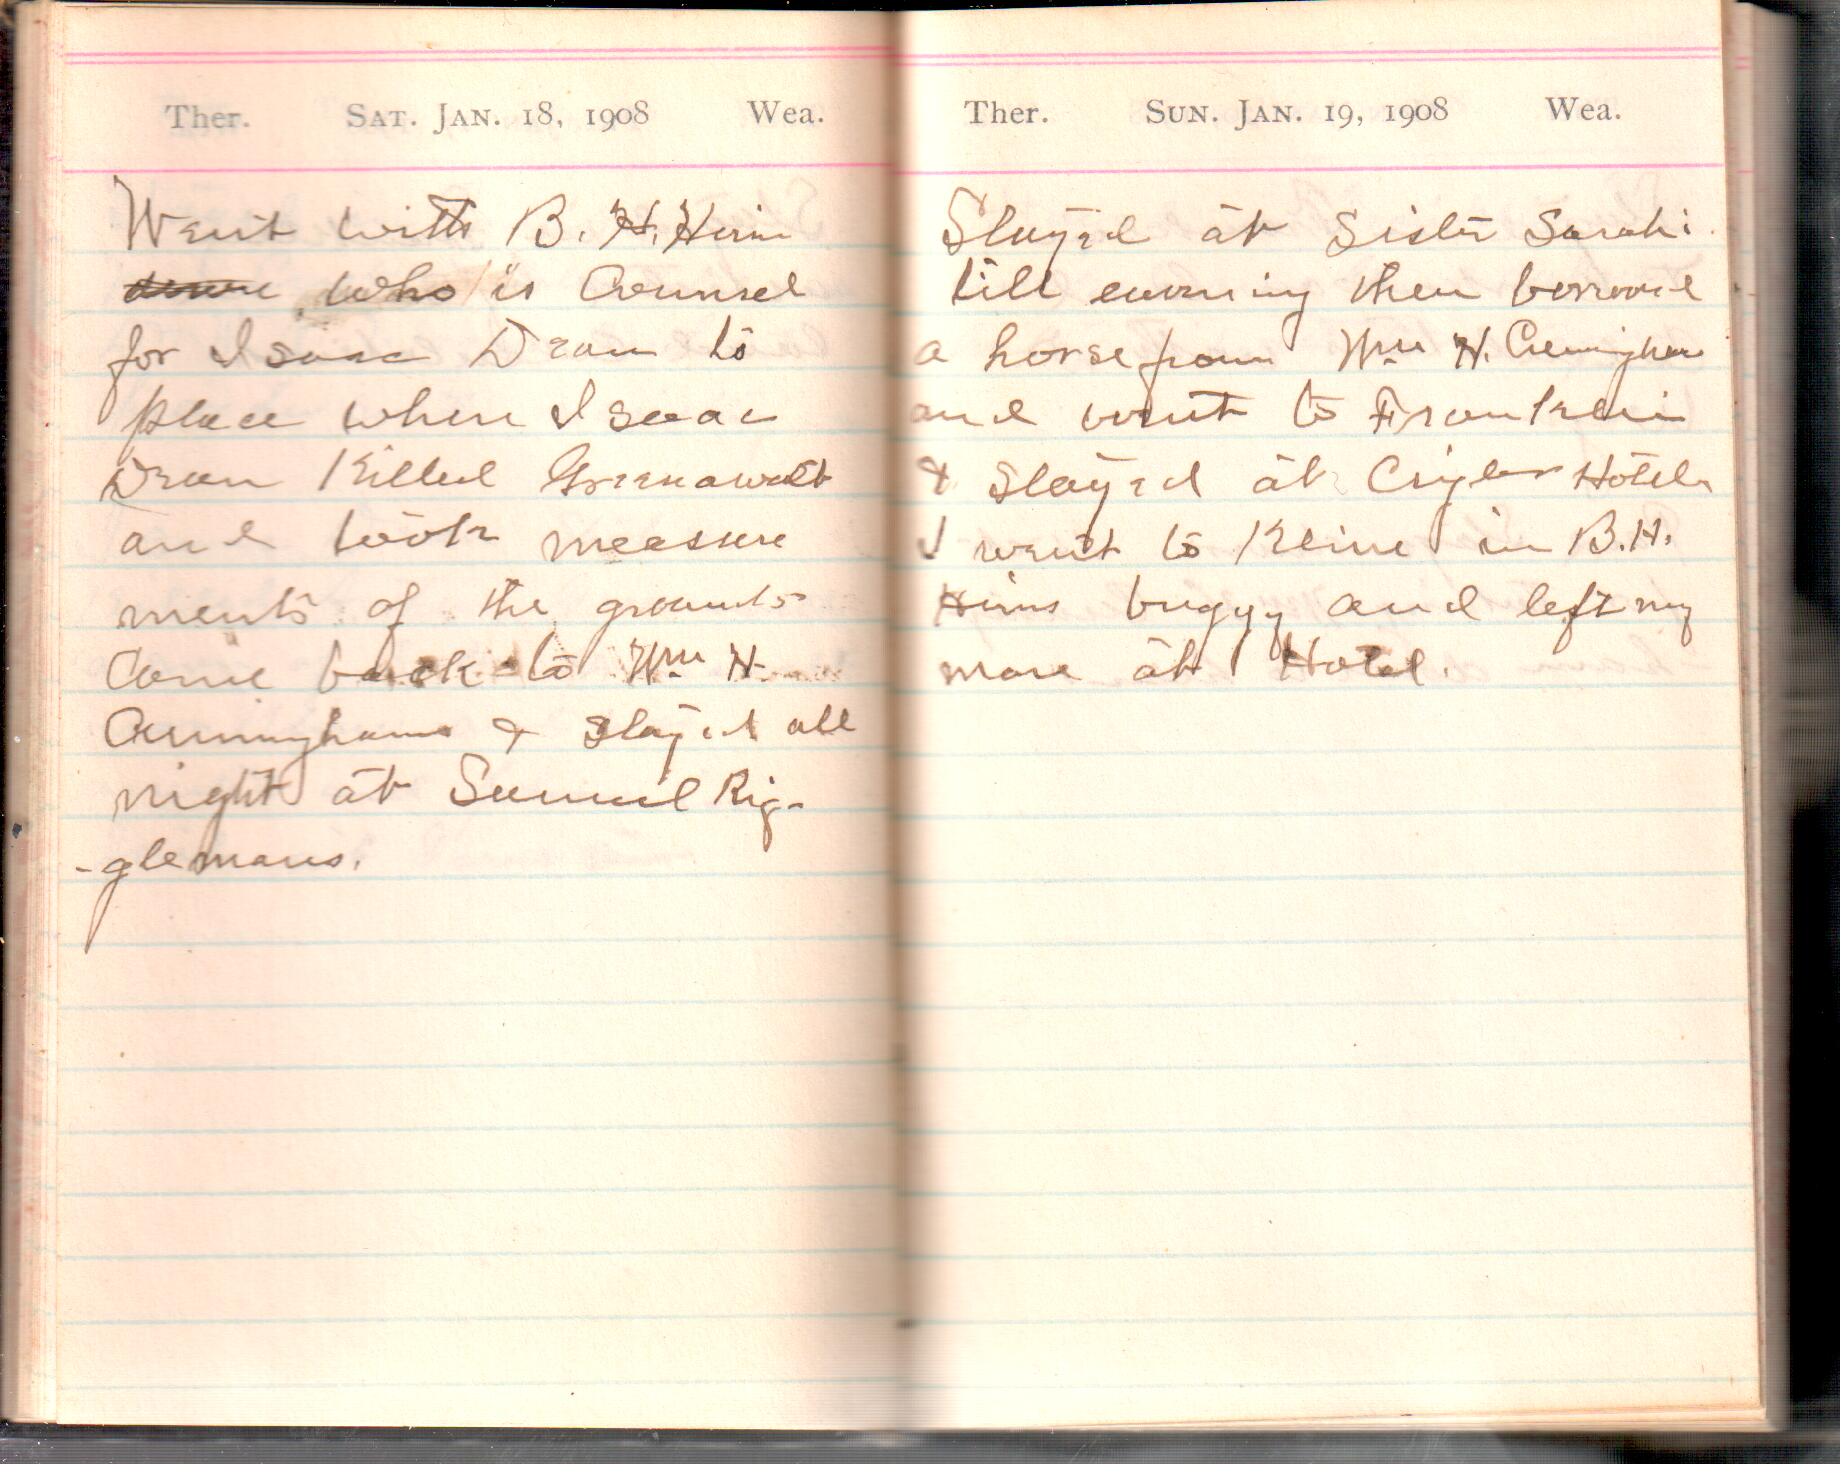 Ther. SAT. JAN. 18, 1908 Wea.
Went with B. H. Hiner
who is Counsel
for Isaac Dean to
place when Isaac
Dean Killed Greenawalt
and took measure
ments of the grounds
Come back to Wm H.
Cunninghams & stayed all
night at Samuel Rig-
-glemans.
Ther. SUN. JAN. 19, 1908 Wea.
Stayed at Sister Sarahs
till evening then borrowed
a horse from Wm H. Cunningham
and went to Franklin
& stayed at Hotel
I went to Kline in B.H.
Hiners buggy and left my
mare at Hotel.